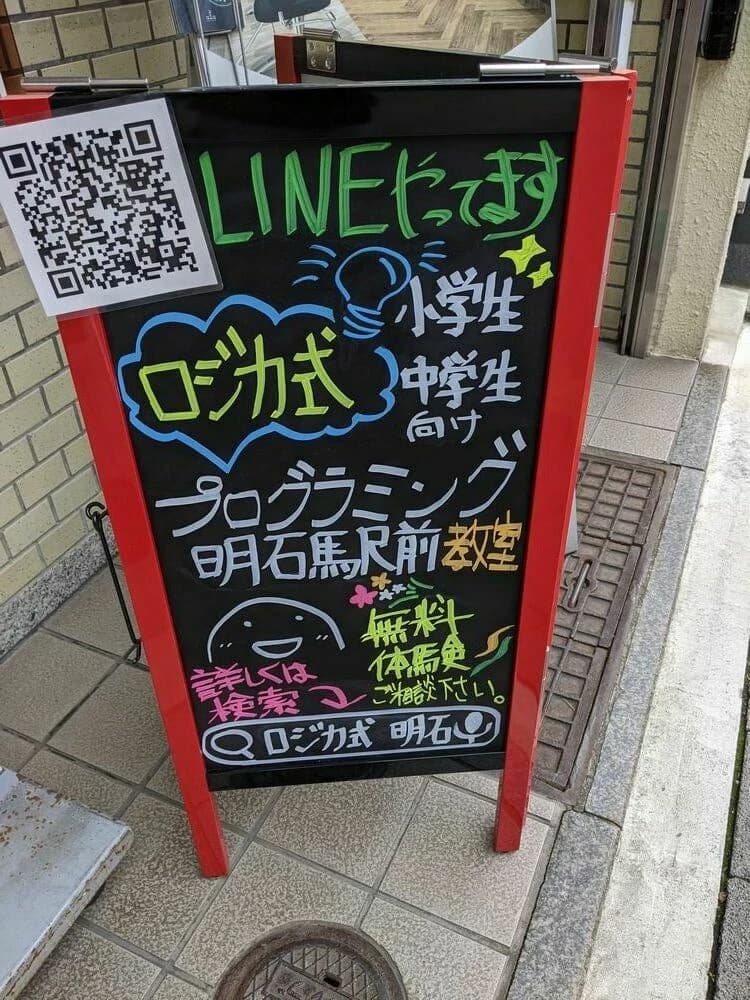 LINEやってます
ロジカ式
小学生
中学生
向け
プログラミング
明石駅前教室
無料
体験
ご相談下さい。
詳しくは
検索
ロジカ式 明石